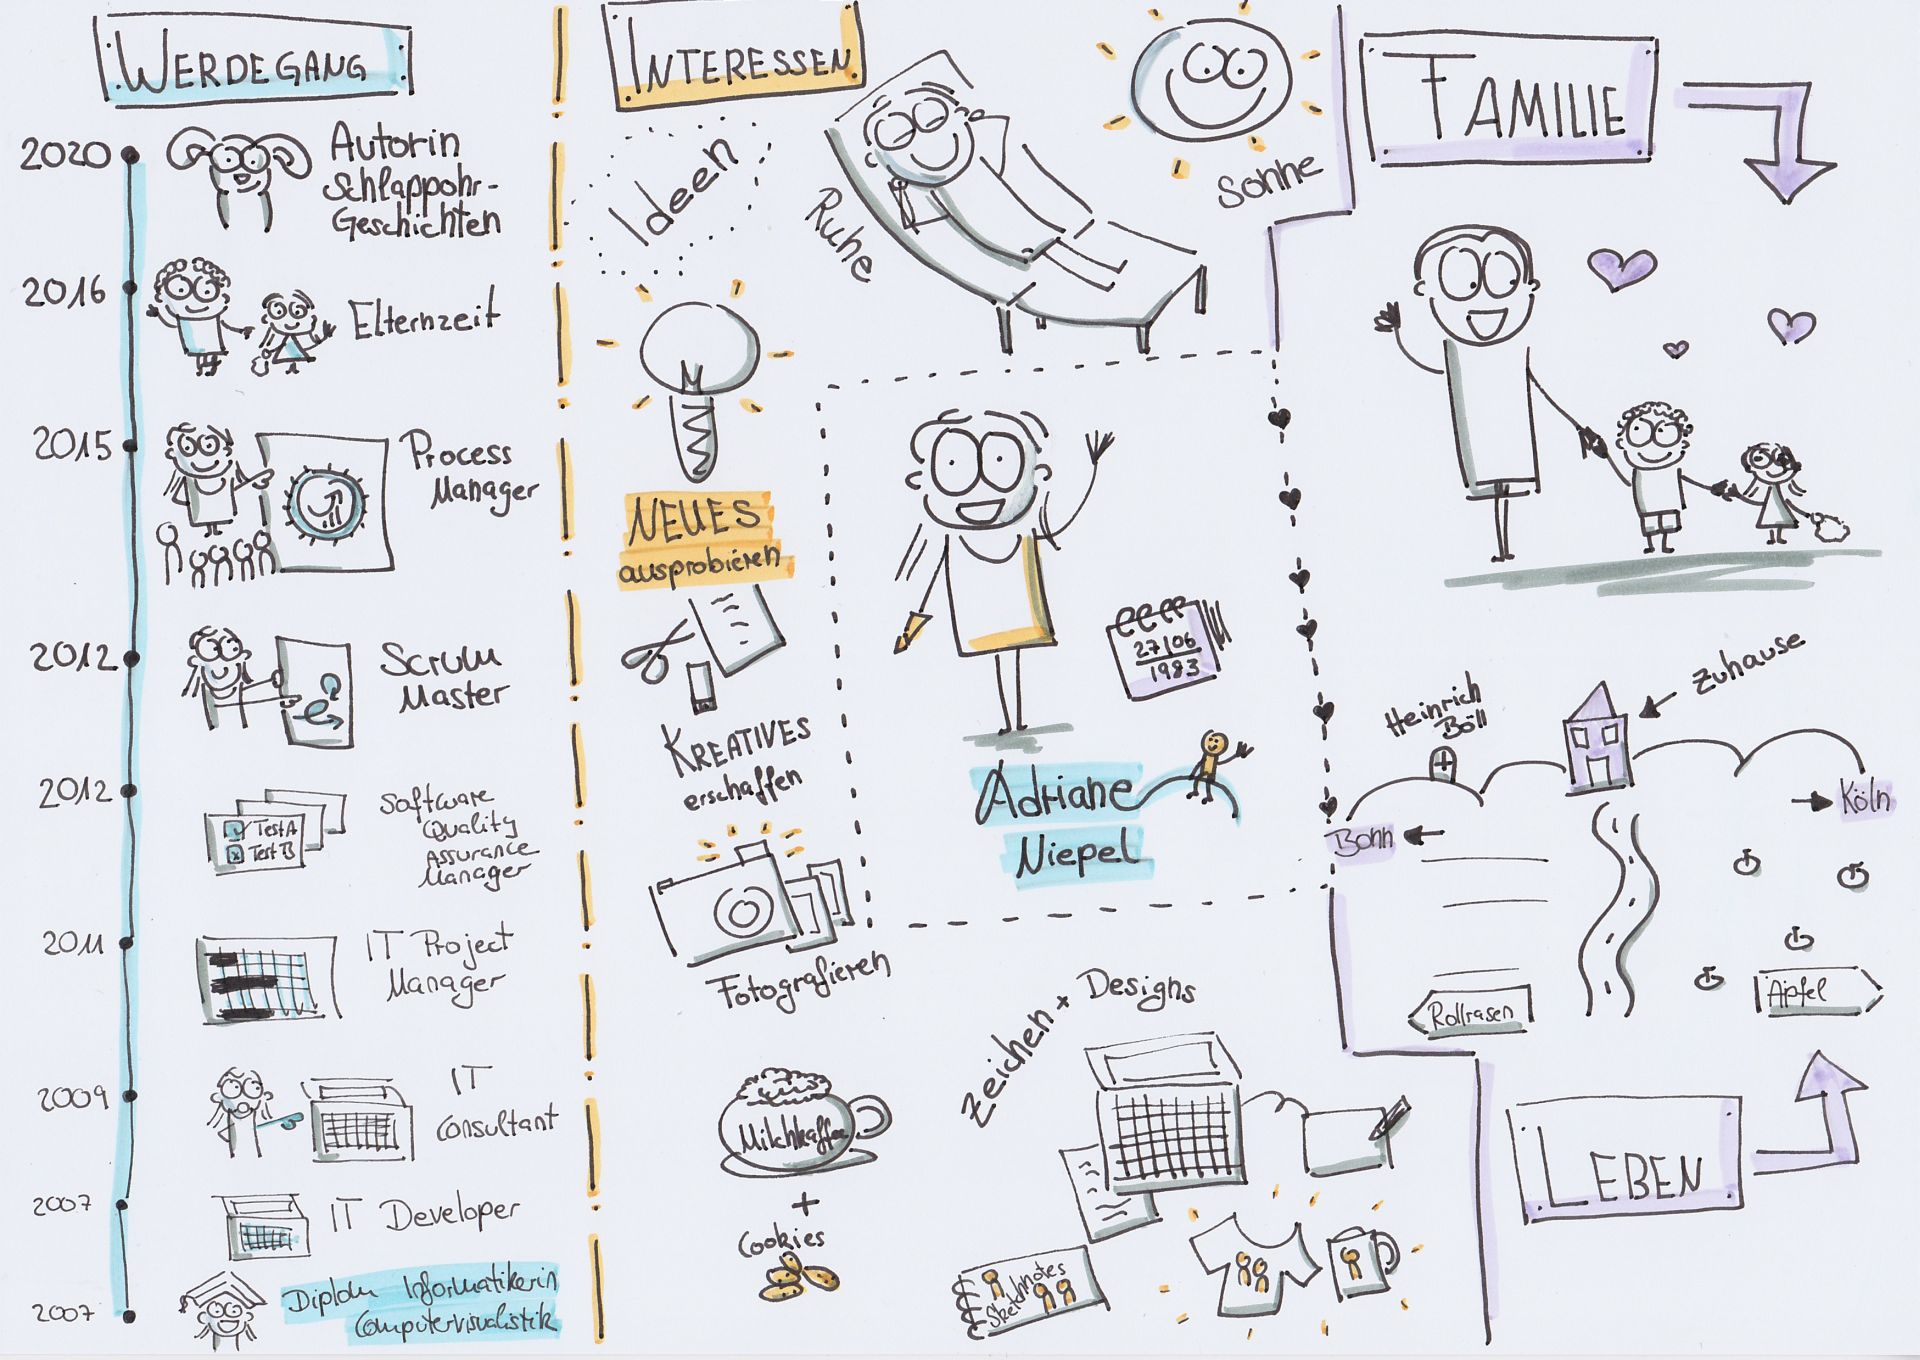 WERDEGANG
2020
Autorin
Schlappohr-
Geschichten
2016
Elternzeit
2015
Process
Manager
2012
Scrum
Master
2012
Software
Quality
Assurance
Manager
Test A
Test B
2011
IT Project
Manager
2009
IT
Consultant
2007
IT Developer
2007
Diplom Informatikerin
Computervisualistik
INTERESSEN
Ideen
Ruhe
Sonne
NEUES
ausprobieren
KREATIVES
erschaffen
Fotografieren
Milchkaffee
+
Cookies
Zeichen + Designs
Sketchnotes
27/06
1983
Adriane
Niepel
FAMILIE
Zuhause
Heinrich
Böll
Köln
Bonn
Rollrasen
Äpfel
LEBEN